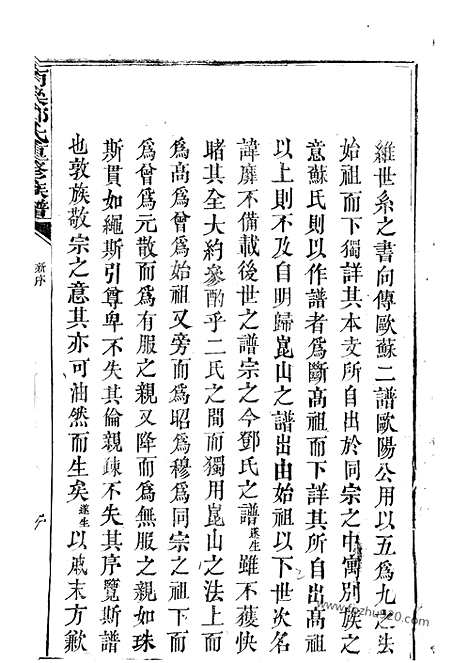 維世系之書向傳歐蘇二譜歐陽公用以五爲九之法
始祖而下獨詳其本支所自出於同宗之中寓別族之
意蘇氏則以作譜者爲斷高祖而下詳其所自出高祖
以上則不及自明歸崑山之譜出由始祖以下世次名
諱靡不備載後世之譜宗之今鄧氏之譜遂生雖不獲快
睹其全大約參酌乎二氏之間而獨用崑山之法上而
爲高爲曾爲始祖又旁而爲昭爲穆爲同宗之祖下而
爲曾爲元散而爲有服之親又降而爲無服之親如珠
斯貫如繩斯引尊卑不失其倫親疎不失其序覽斯譜
也敦族敬宗之意其亦可油然而生矣遂生以戚末方歉
氏重修族譜
新序
www.fozhu920.com